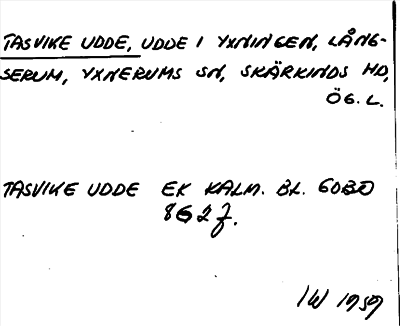 TASVIKE UDDE, UDDE I YXNINGEN, LÅNG-
SERUM, YXNERUMS SN, SKÄRKINDS HD,
ÖG. L.
TASVIKE UDDE EK KALM. BL. GOBD
8G2f.
IW 1959